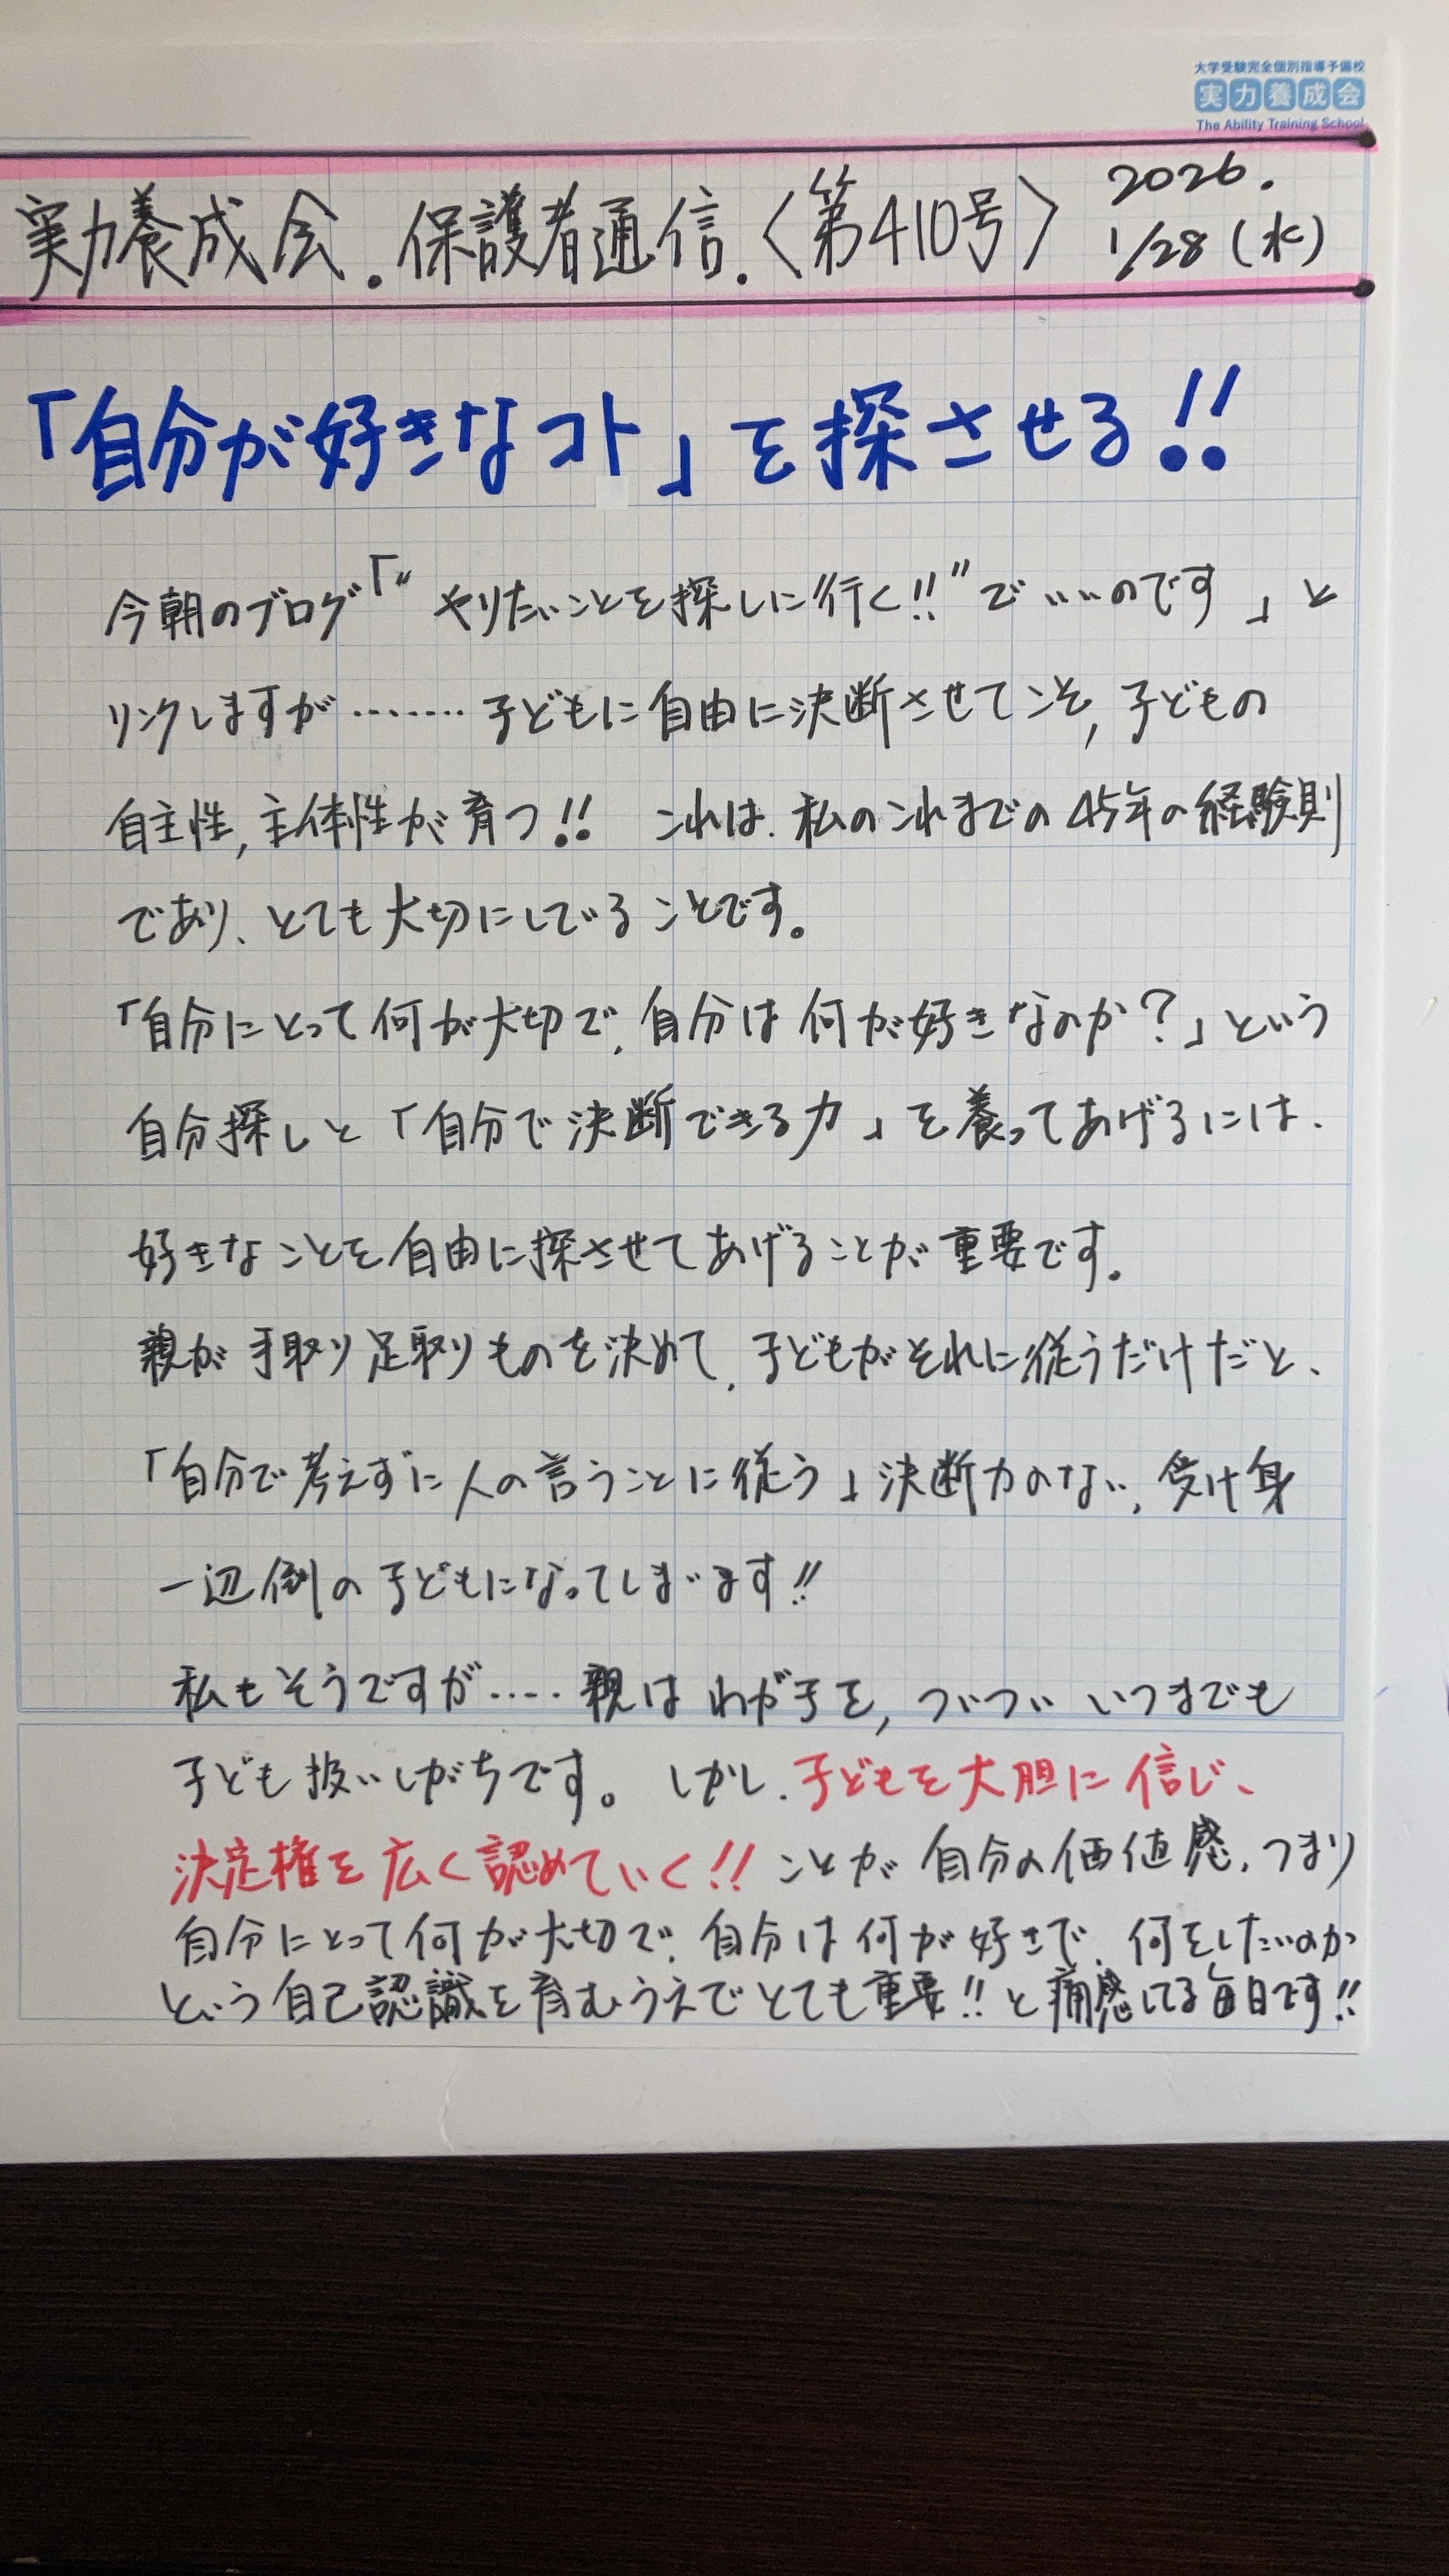 大学受験完全個別指導予備校
実力養成会
The Ability Training School
実力養成会.保護者通信.〈第410号〉
2026.
1/28(水)
「自分が好きなコト」を探させる!!
今朝のブログ「"やりたいことを探しに行く!!"でいいのです」と
リンクしますが……… 子どもに自由に決断させてこそ,子どもの
自主性,主体性が育つ!! これは、私のこれまでの45年の経験則
であり、とても大切にしていることです。
「自分にとって何が大切で、自分は何が好きなのか?」という
自分探しと「自分で決断できる力」を養ってあげるには、
好きなことを自由に探させてあげることが重要です。
親が手取り足取りものを決めて、子どもがそれに従うだけだと、
「自分で考えずに人の言うことに従う」決断力のない,受け身
一辺倒の子どもになってしまいます!!
私もそうですが…… 親はわが子を,ついつい いつまでも
子ども扱いしがちです。しかし、子どもを大胆に信じ、
決定権を広く認めていく!! ことが 自分の価値感、つまり
自分にとって何が大切で、自分は何が好きで、何をしたいのか
という自己認識を育むうえでとても重要!!と痛感してる毎日です!!